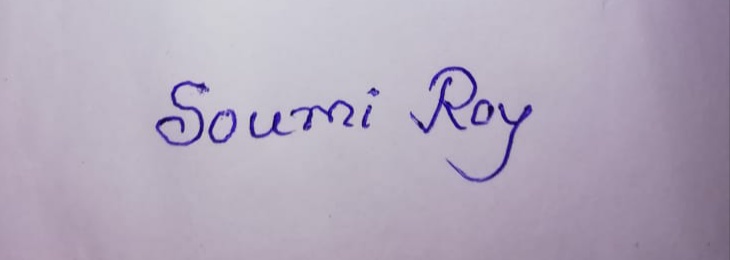 Soumi Roy